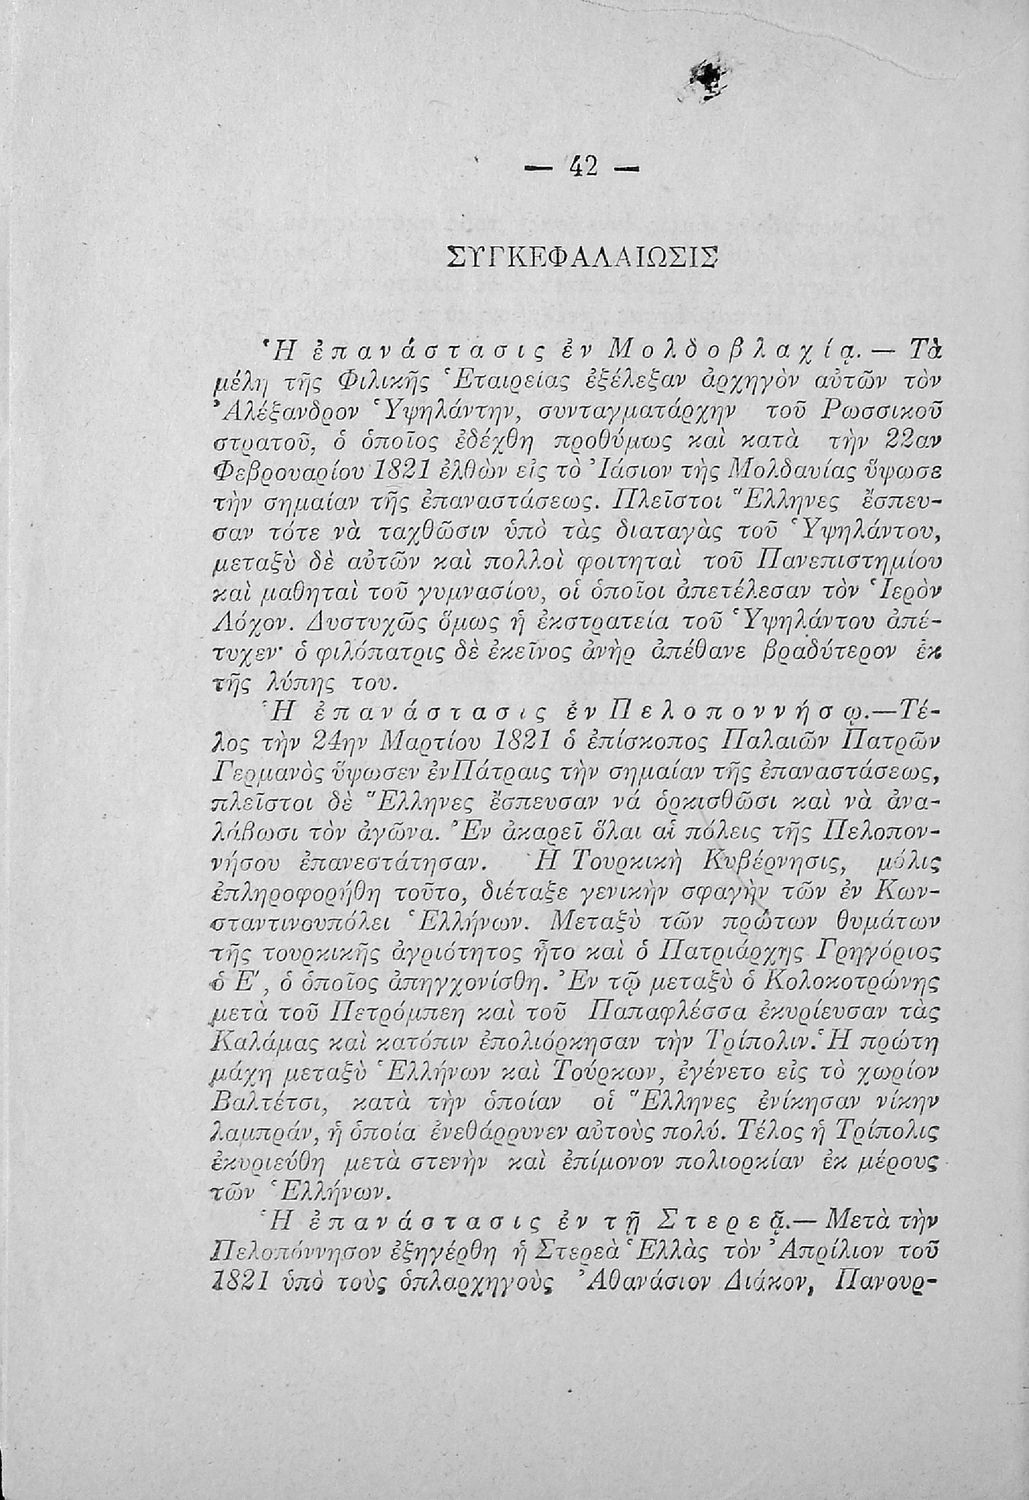 — 42 —
ΣΥΓΚΕΦΑΛΑΙΩΣΙΣ
Ἡ ἐπανάστασις ἐν Μολδοβλαχίᾳ. — Τὰ
μέλη τῆς Φιλικῆς Ἑταιρείας ἐξέλεξαν ἀρχηγὸν αὐτῶν τὸν
Ἀλέξανδρον Ὑψηλάντην, συνταγματάρχην τοῦ Ρωσσικοῦ
στρατοῦ, ὁ ὁποῖος ἐδέχθη προθύμως καὶ κατὰ τὴν 22αν
Φεβρουαρίου 1821 ἐλθὼν εἰς τὸ Ἰάσιον τῆς Μολδαυίας ὕψωσε
τὴν σημαίαν τῆς ἐπαναστάσεως. Πλεῖστοι Ἕλληνες ἔσπευ-
σαν τότε νὰ ταχθῶσιν ὑπὸ τὰς διαταγὰς τοῦ Ὑψηλάντου,
μεταξὺ δὲ αὐτῶν καὶ πολλοὶ φοιτηταὶ τοῦ Πανεπιστημίου
καὶ μαθηταὶ τοῦ γυμνασίου, οἱ ὁποῖοι ἀπετέλεσαν τὸν Ἱερὸν
Λόχον. Δυστυχῶς ὅμως ἡ ἐκστρατεία τοῦ Ὑψηλάντου ἀπέ-
τυχεν· ὁ φιλόπατρις δὲ ἐκεῖνος ἀνὴρ ἀπέθανε βραδύτερον ἐκ
τῆς λύπης του.
Ἡ ἐπανάστασις ἐν Πελοποννήσῳ.—Τέ-
λος τὴν 24ην Μαρτίου 1821 ὁ ἐπίσκοπος Παλαιῶν Πατρῶν
Γερμανὸς ὕψωσεν ἐνΠάτραις τὴν σημαίαν τῆς ἐπαναστάσεως,
πλεῖστοι δὲ Ἕλληνες ἔσπευσαν νά ὁρκισθῶσι καὶ νὰ ἀνα-
λάβωσι τὸν ἀγῶνα. Ἐν ἀκαρεῖ ὅλαι αἱ πόλεις τῆς Πελοπον-
νήσου ἐπανεστάτησαν. Ἡ Τουρκικὴ Κυβέρνησις, μόλις
ἐπληροφορήθη τοῦτο, διέταξε γενικὴν σφαγὴν τῶν ἐν Κων-
σταντινουπόλει Ἑλλήνων. Μεταξὺ τῶν πρώτων θυμάτων
τῆς τουρκικῆς ἀγριότητος ἦτο καὶ ὁ Πατριάρχης Γρηγόριος
ὁ Ε′, ὁ ὁποῖος ἀπηγχονίσθη. Ἐν τῷ μεταξὺ ὁ Κολοκοτρώνης
μετὰ τοῦ Πετρόμπεη καὶ τοῦ Παπαφλέσσα ἐκυρίευσαν τὰς
Καλάμας καὶ κατόπιν ἐπολιόρκησαν τὴν Τρίπολιν. Ἡ πρώτη
μάχη μεταξὺ Ἑλλήνων καὶ Τούρκων, ἐγένετο εἰς τὸ χωρίον
Βαλτέτσι, κατὰ τὴν ὁποίαν οἱ Ἕλληνες ἐνίκησαν νίκην
λαμπράν, ἡ ὁποία ἐνεθάρρυνεν αὐτοὺς πολύ. Τέλος ἡ Τρίπολις
ἐκυριεύθη μετὰ στενὴν καὶ ἐπίμονον πολιορκίαν ἐκ μέρους
τῶν Ἑλλήνων.
Ἡ ἐπανάστασις ἐν τῇ Στερεᾷ.— Μετὰ τὴν
Πελοπόννησον ἐξηγέρθη ἡ Στερεὰ Ἑλλὰς τὸν Ἀπρίλιον τοῦ
1821 ὑπὸ τοὺς ὁπλαρχηγοὺς Ἀθανάσιον Διάκον, Πανουρ-